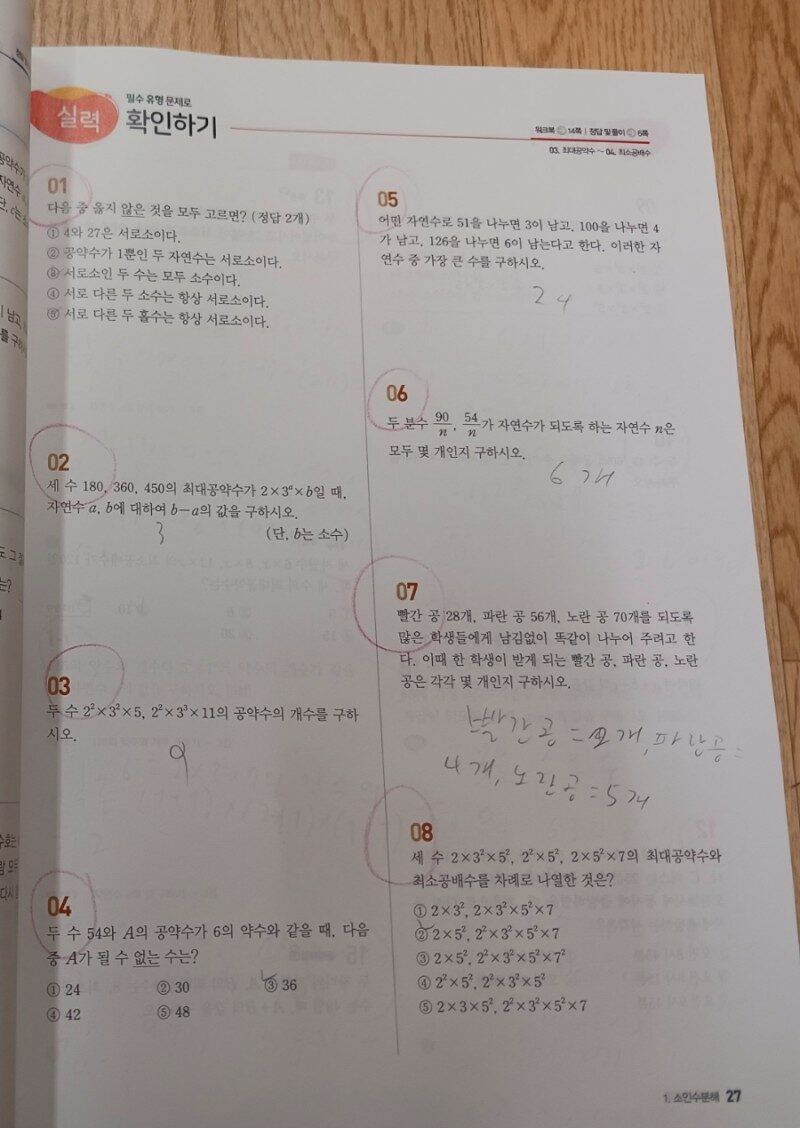 필수 유형 문제로
실력 확인하기
워크북 14쪽 | 정답 및 풀이 6쪽
03. 최대공약수 ~ 04. 최소공배수
01
다음 중 옳지 않은 것을 모두 고르면? (정답 2개)
① 4와 27은 서로소이다.
② 공약수가 1뿐인 두 자연수는 서로소이다.
③ 서로소인 두 수는 모두 소수이다.
④ 서로 다른 두 소수는 항상 서로소이다.
⑤ 서로 다른 두 홀수는 항상 서로소이다.
02
세 수 180, 360, 450의 최대공약수가 2×3ᵃ×b일 때,
자연수 a, b에 대하여 b-a의 값을 구하시오.
(단, b는 소수)
3
03
두 수 2²×3²×5, 2²×3³×11의 공약수의 개수를 구하
시오.
9
04
두 수 54와 A의 공약수가 6의 약수와 같을 때, 다음
중 A가 될 수 없는 수는?
① 24 ② 30 ③ 36
④ 42 ⑤ 48
05
어떤 자연수로 51을 나누면 3이 남고, 100을 나누면 4
가 남고, 126을 나누면 6이 남는다고 한다. 이러한 자
연수 중 가장 큰 수를 구하시오.
24
06
두 분수 90/n, 54/n가 자연수가 되도록 하는 자연수 n은
모두 몇 개인지 구하시오.
6개
07
빨간 공 28개, 파란 공 56개, 노란 공 70개를 되도록
많은 학생들에게 남김없이 똑같이 나누어 주려고 한
다. 이때 한 학생이 받게 되는 빨간 공, 파란 공, 노란
공은 각각 몇 개인지 구하시오.
빨간공=2개, 파란공=
4개, 노란공=5개
08
세 수 2×3²×5², 2²×5², 2×5²×7의 최대공약수와
최소공배수를 차례로 나열한 것은?
① 2×3², 2×3²×5²×7
② 2×5², 2²×3²×5²×7
③ 2×5², 2²×3²×5²×7²
④ 2²×5², 2²×3²×5²
⑤ 2×3×5², 2²×3²×5²×7
1. 소인수분해 27